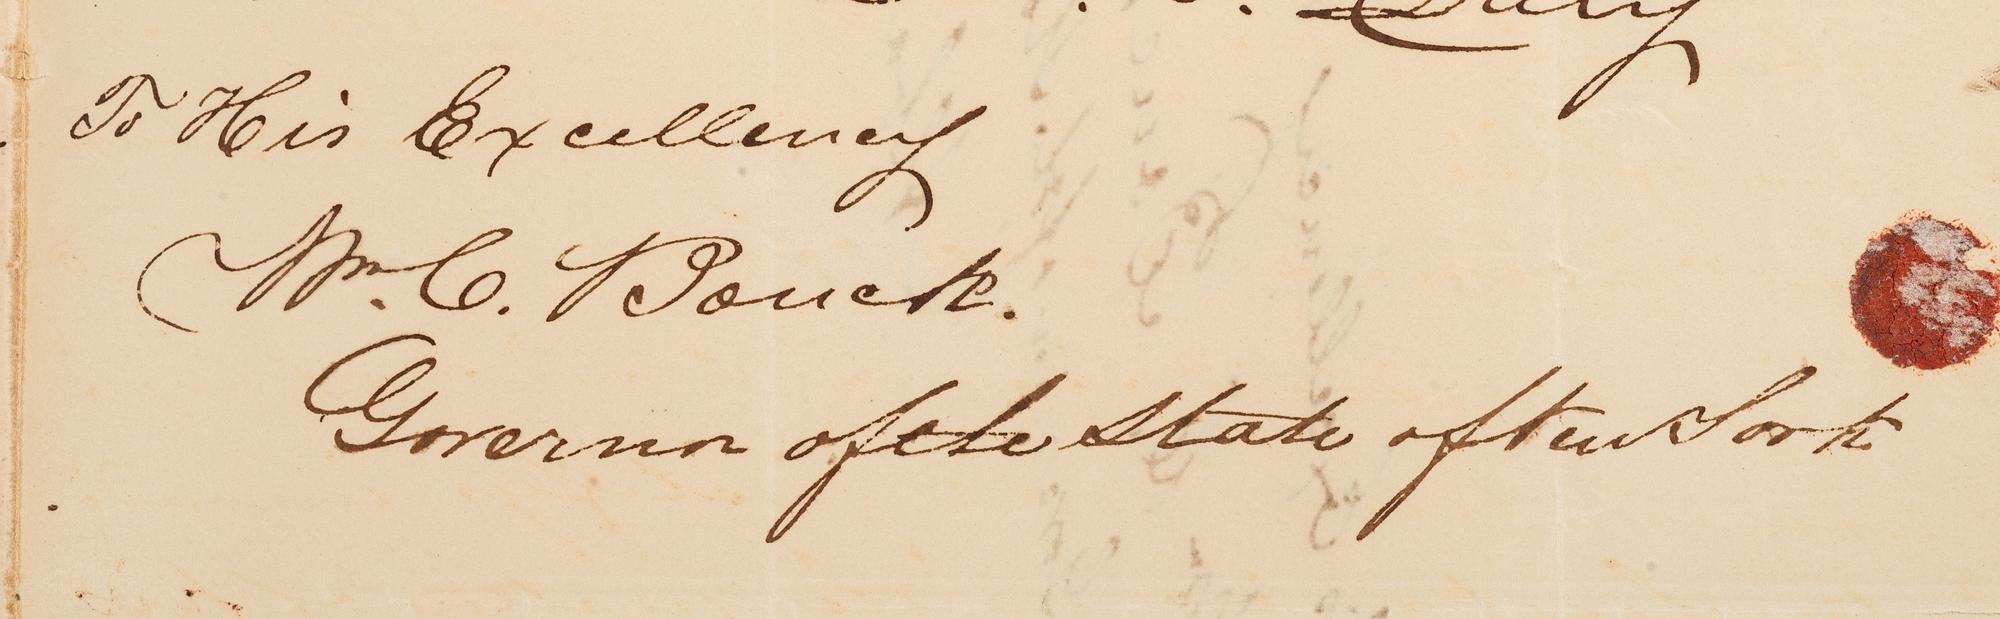 To His Excellency
Wm. C. Bouck.
Governor of the State of New York